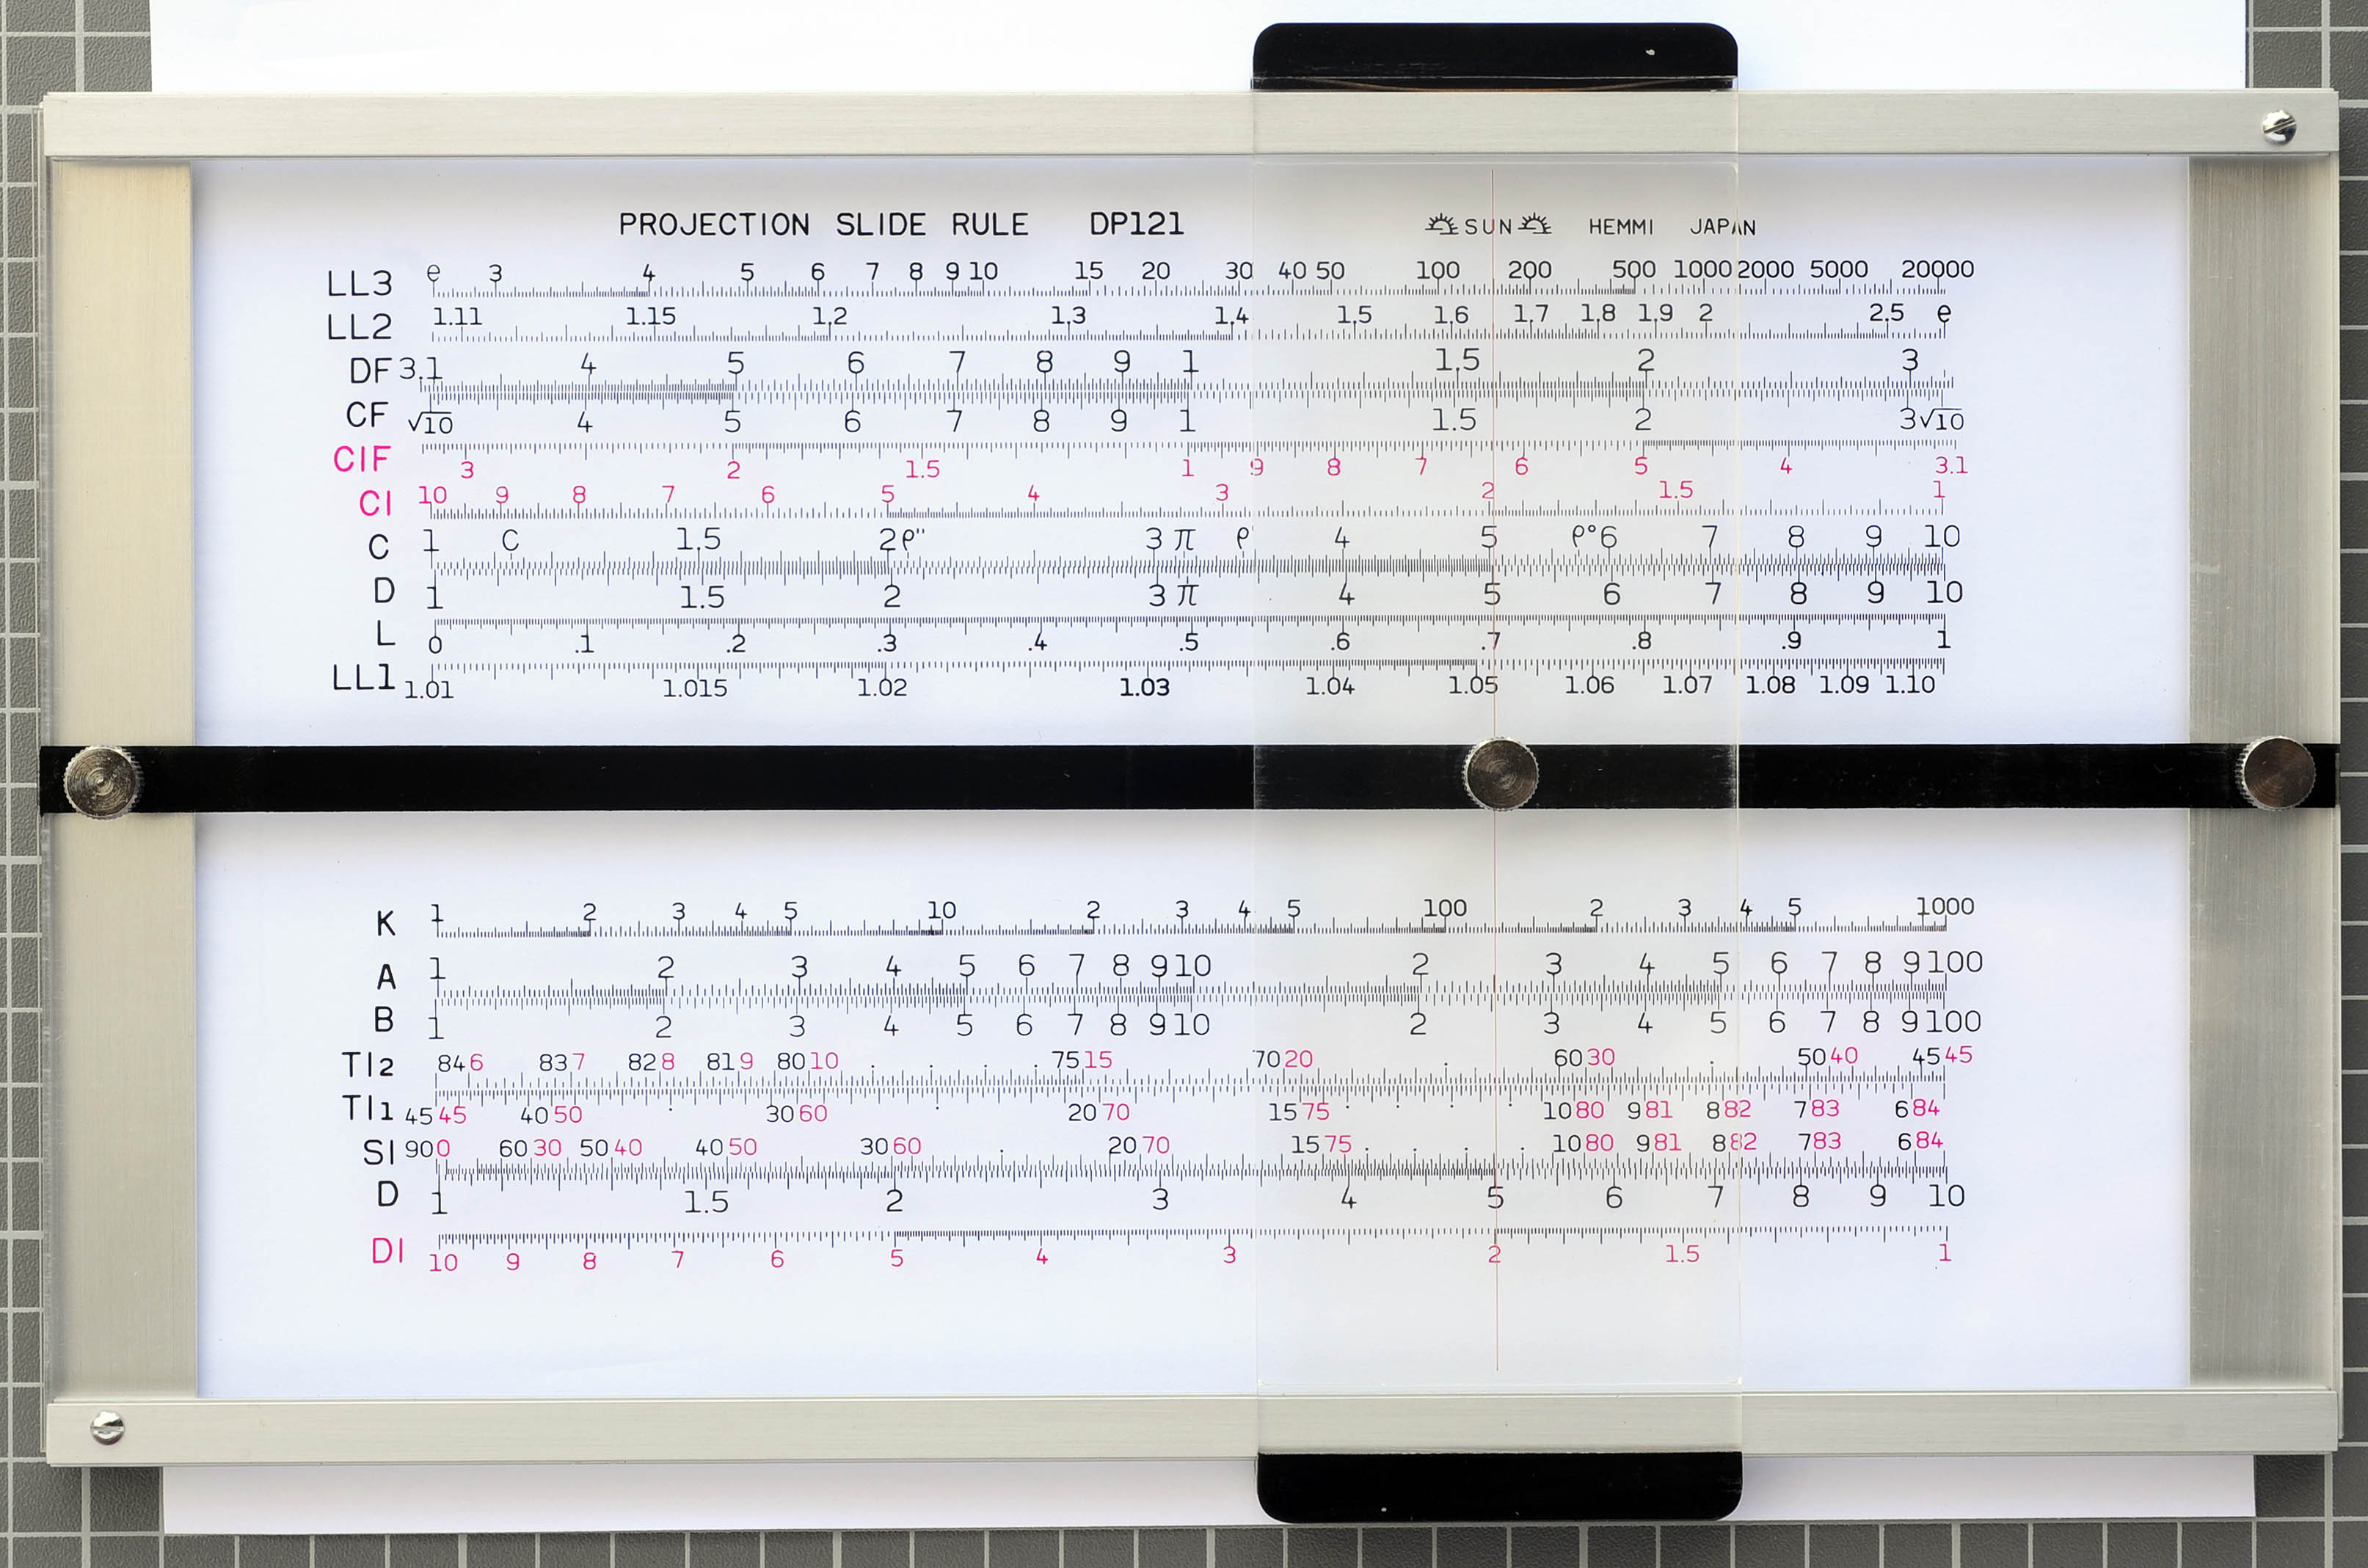 PROJECTION SLIDE RULE DP121 SUN HEMMI JAPAN
LL3 e 3 4 5 6 7 8 9 10 15 20 30 40 50 100 200 500 1000 2000 5000 20000
LL2 1.11 1.15 1.2 1.3 1.4 1.5 1.6 1.7 1.8 1.9 2 2.5 e
DF 3.1 4 5 6 7 8 9 1 1.5 2 3
CF √10 4 5 6 7 8 9 1 1.5 2 3 √10
CIF 3 2 1.5 1 9 8 7 6 5 4 3.1
CI 10 9 8 7 6 5 4 3 2 1.5 1
C 1 C 1.5 2 ρ" 3 π ρ' 4 5 ρ° 6 7 8 9 10
D 1 1.5 2 3 π 4 5 6 7 8 9 10
L 0 .1 .2 .3 .4 .5 .6 .7 .8 .9 1
LL1 1.01 1.015 1.02 1.03 1.04 1.05 1.06 1.07 1.08 1.09 1.10
K 1 2 3 4 5 10 2 3 4 5 100 2 3 4 5 1000
A 1 2 3 4 5 6 7 8 9 10 2 3 4 5 6 7 8 9 100
B 1 2 3 4 5 6 7 8 9 10 2 3 4 5 6 7 8 9 100
TI2 84 6 83 7 82 8 81 9 80 10 75 15 70 20 60 30 50 40 45 45
TI1 45 45 40 50 30 60 20 70 15 75 10 80 9 81 8 82 7 83 6 84
SI 90 0 60 30 50 40 40 50 30 60 20 70 15 75 10 80 9 81 8 82 7 83 6 84
D 1 1.5 2 3 4 5 6 7 8 9 10
DI 10 9 8 7 6 5 4 3 2 1.5 1